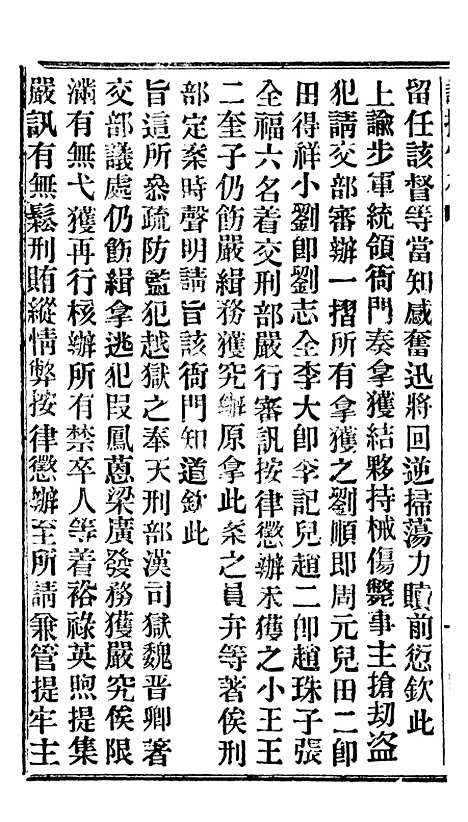 留任該督等當知感奮迅將回逆掃蕩力贖前愆欽此
上諭步軍統領衙門奏拿獲結夥持械傷斃事主搶劫盜
犯請交部審辦一摺所有拿獲之劉順卽周元兒田二卽
田得祥小劉卽劉志全李大卽李記兒趙二卽趙珠子張
全福六名着交刑部嚴行審訊按律懲辦未獲之小王王
二奎子仍飭嚴緝務獲究辦原拿此案之員弁等著俟刑
部定案時聲明請旨該衙門知道欽此
旨這所叅疏防監犯越獄之奉天刑部漢司獄魏晋卿著
交部議處仍飭緝拿逃犯叚鳳蔥梁廣發務獲嚴究俟限
滿有無弋獲再行核辦所有禁卒人等着裕祿英煦提集
嚴訊有無鬆刑賄縱情弊按律懲辦至所請兼管提牢主